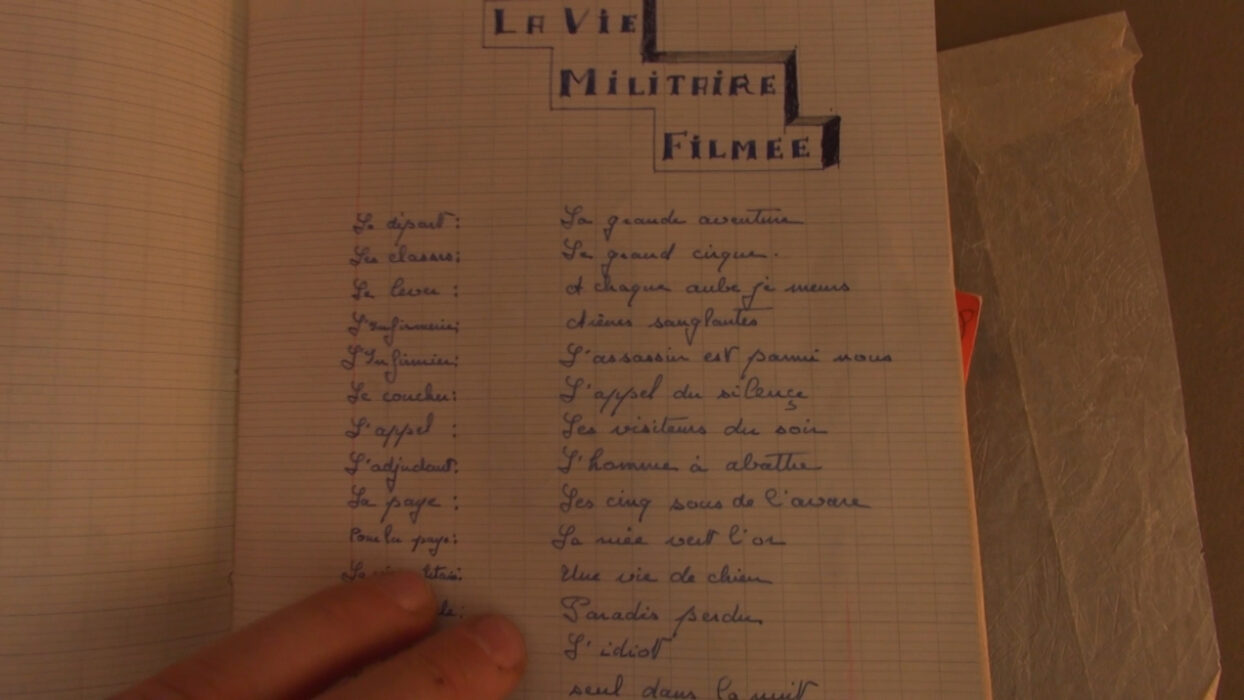 LA VIE
MILITAIRE
FILMEE
Le départ : La grande aventure
Les classes : Le grand cirque.
Le lever : A chaque aube je meurs
L'Infirmerie : Arènes sanglantes
L'Infirmier : L'assassin est parmi nous
Le coucher : L'appel du silence
L'appel : Les visiteurs du soir
L'adjudant : L'homme à abattre
La paye : Les cinq sous de l'avare
La vert l'or
Une vie de chien
Paradis perdu
L'idiot
seul dans la nuit